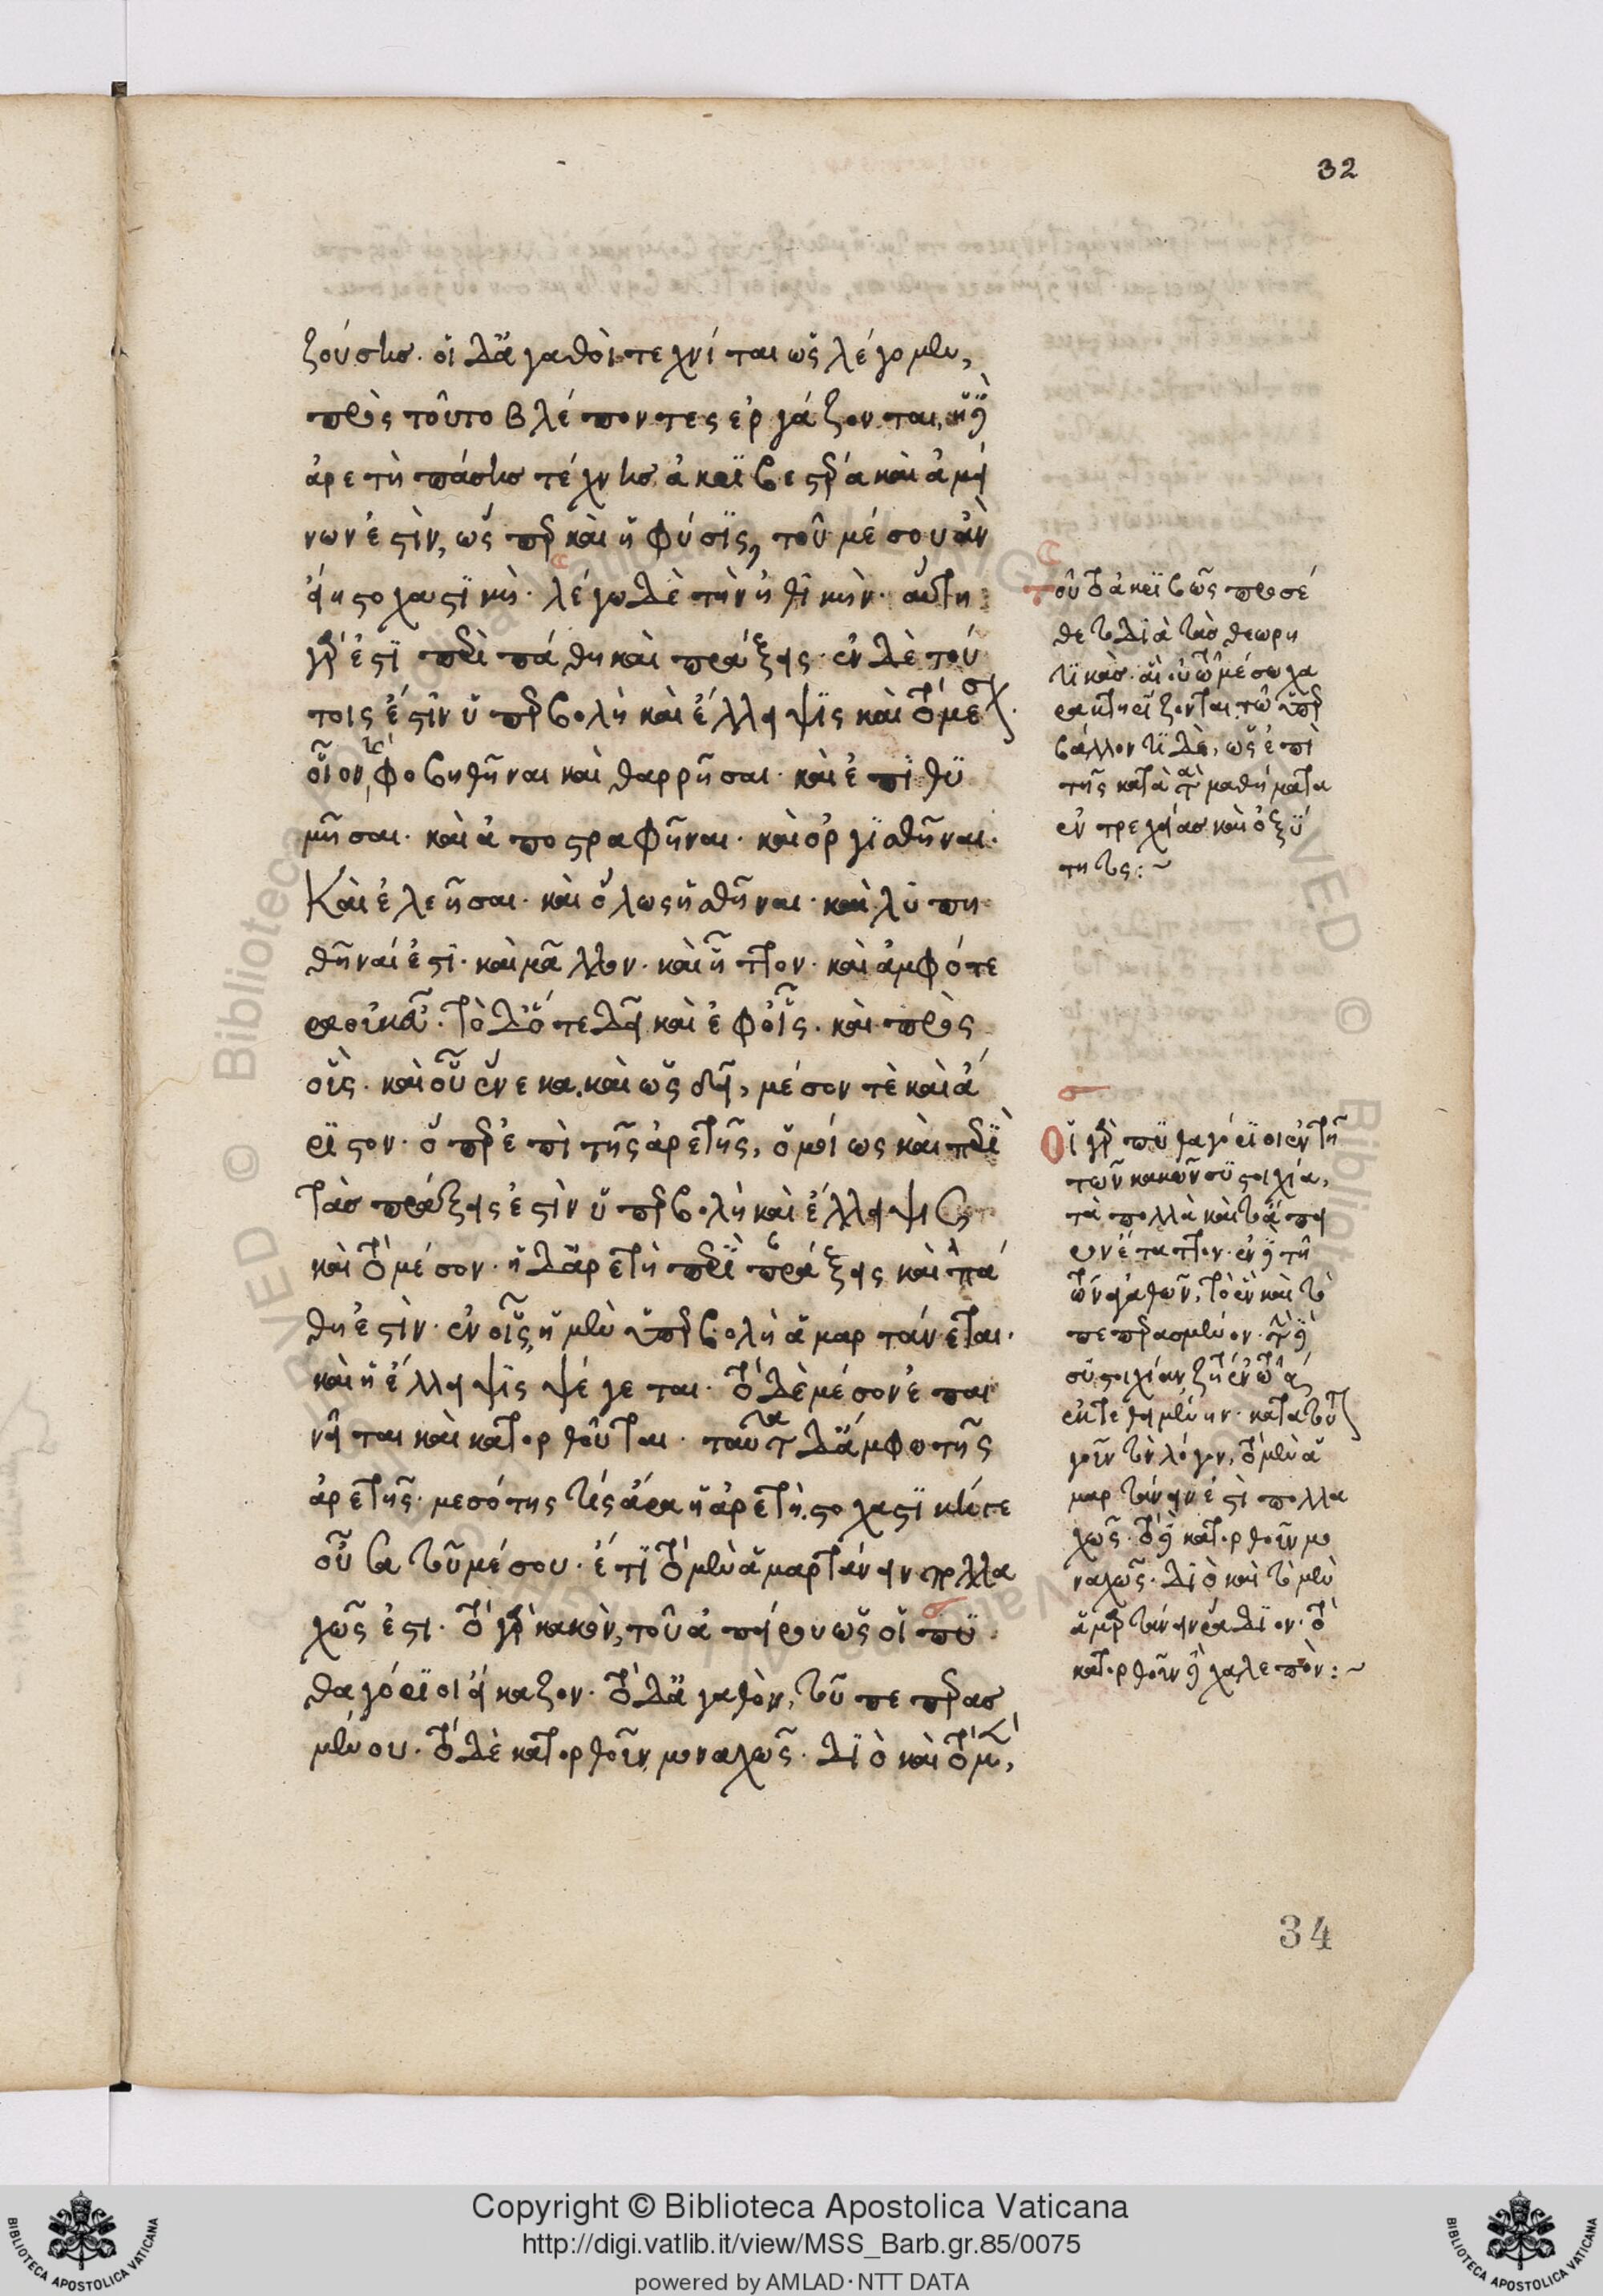 32
ζούσης· οἱ δ' ἀγαθοὶ τεχνίται ὡς λέγομεν,
πρὸς τοῦτο βλέποντες ἐργάζονται, ἡ δὲ
ἀρετὴ πάσης τέχνης ἀκριβεστέρα καὶ ἀμεί
νων ἐστὶν, ὥσπερ καὶ ἡ φύσις, τοῦ μέσου ἂν
εἴη στοχαστικὴ· λέγω δὲ τὴν ἠθικὴν· αὕτη
γάρ ἐστι περὶ πάθη καὶ πράξεις· ἐν δὲ τού
τοις ἔστιν ὑπερβολὴ καὶ ἔλλειψις καὶ τὸ μέσον·
οἷον καὶ φοβηθῆναι καὶ θαρρῆσαι· καὶ ἐπιθυ
μῆσαι· καὶ ἀποστραφῆναι· καὶ ὀργισθῆναι·
Καὶ ἐλεῆσαι· καὶ ὅλως ἡσθῆναι· καὶ λυπη
θῆναί ἐστι· καὶ μᾶλλον· καὶ ἧττον· καὶ ἀμφότε
ρα οὐκ εὖ· τὸ δ' ὅτε δεῖ καὶ ἐφ' οἷς· καὶ πρὸς
οὓς· καὶ οὗ ἕνεκα· καὶ ὡς δεῖ, μέσον τὲ καὶ ἄ
ριστον· ὅπερ ἐπὶ τῆς ἀρετῆς, ὁμοίως καὶ περὶ
τὰς πράξεις ἐστὶν ὑπερβολὴ καὶ ἔλλειψις
καὶ τὸ μέσον· ἡ δ' ἀρετὴ περὶ πράξεις καὶ πά
θη ἐστὶν· ἐν οἷς, ἡ μὲν ὑπερβολὴ ἁμαρτάνεται·
καὶ ἡ ἔλλειψις ψέγεται· τὸ δὲ μέσον ἐπαι
νεῖται καὶ κατορθοῦται· ταῦτα δ' ἄμφω τῆς
ἀρετῆς· μεσότης τίς ἄρα ἡ ἀρετὴ· στοχαστική τε
οὖσα τοῦ μέσου· ἔτι τὸ μὲν ἁμαρτάνειν πολλα
χῶς ἐστι· τὸ γὰρ κακὸν, τοῦ ἀπείρου ὡς οἱ πυ
θαγόριοι εἴκαζον· τὸ δ' ἀγαθὸν, τοῦ πεπερασ
μένου· τὸ δὲ κατορθοῦν, μοναχῶς· διὸ καὶ τὸ μὲν,
τοῦτ' ἀκριβῶς προσέ
θετο διὰ τὰς θεωρη
τικὰς· αἳ οὐ τῶ μέσω χα
ρακτηρίζονται, τῶ ὑπερ
βάλλοντι δὲ, ὡς ἐπὶ
τῆς κατὰ τὰ μαθήματα
ἐντρεχείας καὶ ὀξύ
τητος:~
Οἱ γὰρ πυθαγόριοι ἐν τῆ
τῶν κακῶν συστοιχία,
τὰ πολλὰ καὶ τὸ ἄπει
ρον ἔταττον· ἐν δὲ τῆ
τῶν ἀγαθῶν, τὸ ἓν καὶ τὸ
πεπερασμένον· τὴν δὲ
συστοιχίαν ζήτει ἐν τῶ α
ἐκτεθειμένην· κατὰ τοῦτον
γοῦν τὸν λόγον, τὸ μὲν ἁ
μαρτάνειν ἐστὶ πολλα
χῶς· τὸ δὲ κατορθοῦν μο
ναχῶς· διὸ καὶ τὸ μὲν
ἁμαρτάνειν ῥάδιον· τὸ
κατορθοῦν δὲ χαλεπὸν:~
34
Copyright © Biblioteca Apostolica Vaticana
http://digi.vatlib.it/view/MSS_Barb.gr.85/0075
powered by AMLAD·NTT DATA